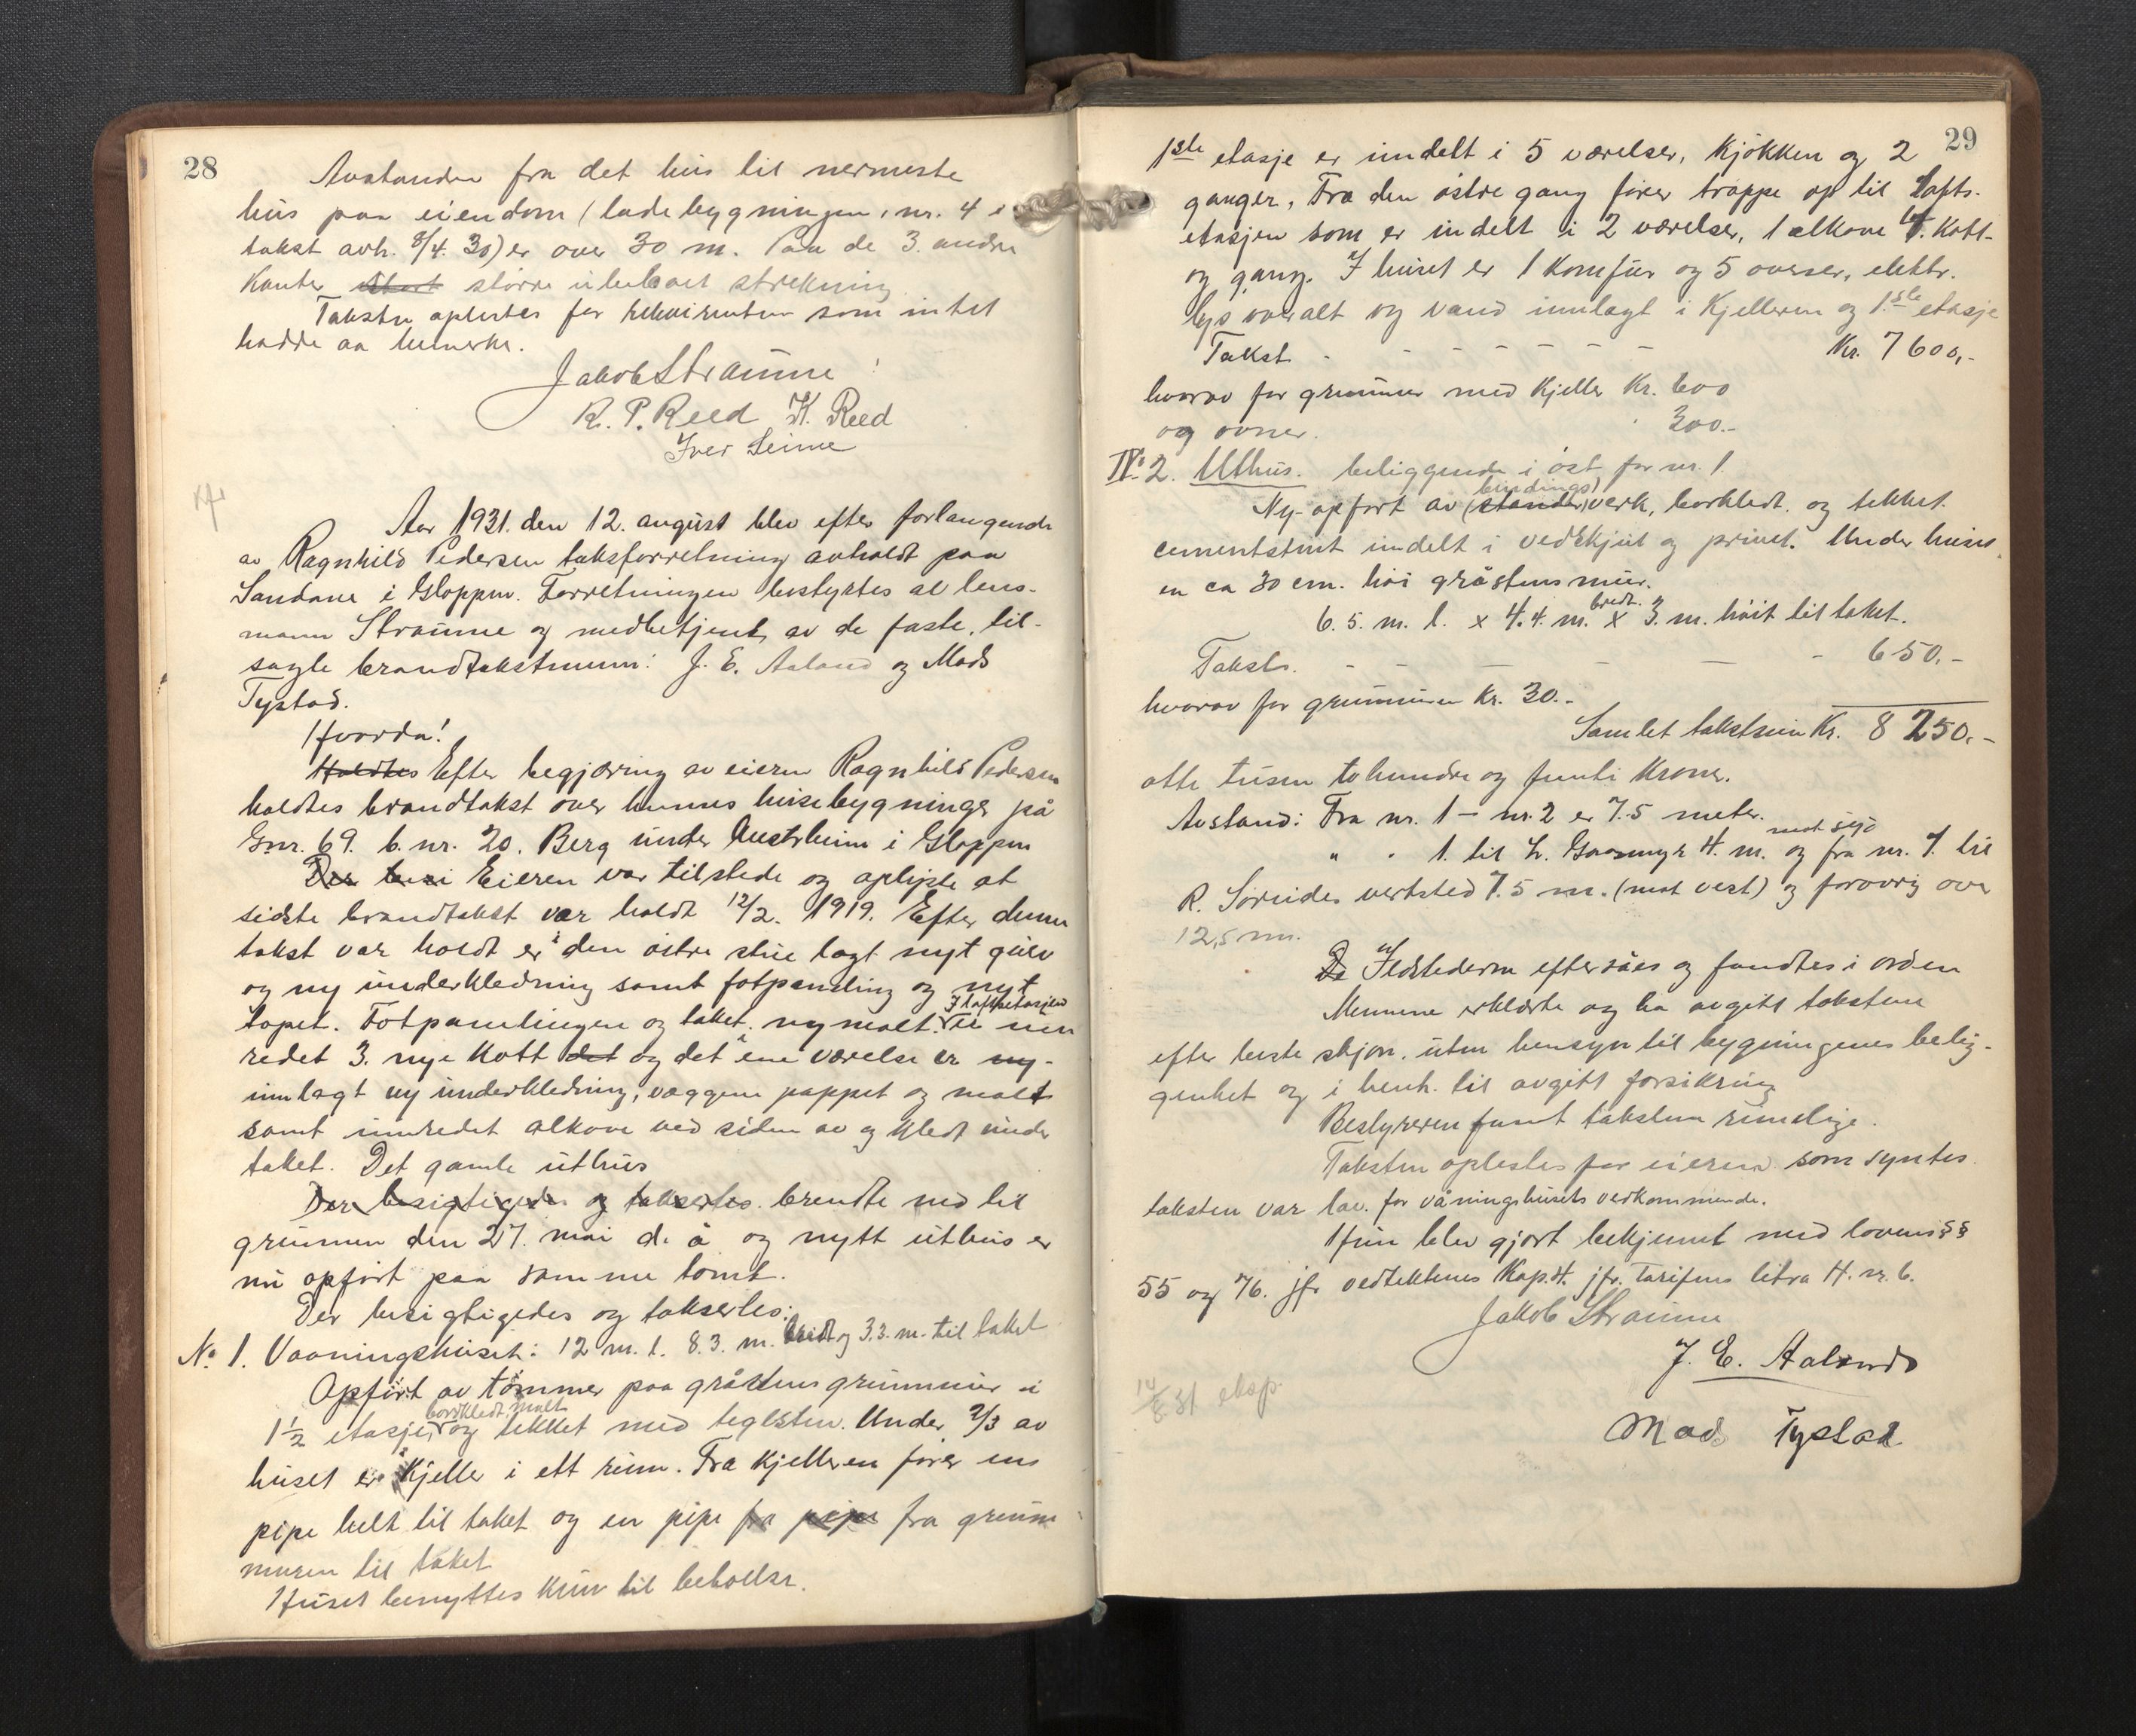 28
Avstanden fra det hus til nermeste
hus paa eiendom (ladebygningen, nr. 4 i
takst avh. 8/4. 30) er over 30 m. Paa de 3. andre
kanter større ubebygt strekning
Taksten oplestes for rekvirenten som intet
hadde aa bemerke.
Jakob Straume
R. P. Reed K. Reed
Iver Seime
Aar 1931. den 12. august blev efter forlangende
av Ragnhild Pedersen taksforretning avholdt paa
Sandane i Gloppen. Forretningen bestyrtes av lens-
mann Straume og medbetjent av de faste, til-
sagte brandtakstmenn: J. E. Aaland og Mads
Tystad.
Hvorda!
Holdtes Efter begjæring av eieren Ragnhild Pedersen
holdtes brandtakst over hennes husebygninger på
Gnr. 69. b. nr. 20. Berg under Austrheim i Gloppen
Eieren var tilstede og oplyste at
sidste brandtakst var holdt 12/2. 1919. Efter denne
takst var holdt er i den østre stue lagt nyt gulv
og ny underkledning samt fotpaneling og nyt
tapet. Fotpanelingen og taket nymalt. I loftsetasjen er inn
redet 3. nye kott det og det ene værelse er ny-
innlagt ny underkledning, væggene pappet og malt
samt innredet alkove ved siden av og kledt under
taket. Det gamle uthus
Der besigtigedes og takseertes brendte ned til
grunnen den 27. mai d. å og nytt uthus er
nu opført paa samme tomt.
Der besigtigedes og taksertes:
No. 1. Vaaningshuset: 12 m. l. 8.3. m. bredt og 3.3. m. til taket
Opført av tømmer paa gråstens grunnmur i
1 1/2 etasje, bordkledt, malt og tekket med teglsten. Under 2/3 av
huset er kjeller i ett rum. Fra kjelleren fører en
pipe helt til taket og en pipe fra pipe fra grunn
muren til taket
Huset benyttes kun til beboelse.
29
1ste etasje er inndelt i 5 værelser, kjøkken og 2
ganger, Fra den østre gang fører trappe op til lofts-
etasjen som er inndelt i 2 værelser, 1 alkove 4. Kott-
og gang. I huset er 1 komfur og 5 ovner, elektr.
lys overalt og vand innlagt i Kjelleren og 1.ste etasje
Takst - - - - - - - Kr. 7600,-
hvorav for grunnmur med kjeller Kr. 600
og ovner. 300.-
No. 2. Uthus. beliggende i øst for nr. 1.
Ny-opført av (stender) bindingsverk, bordkledt. og tekket.
cementstent inndelt i vedskjul og privet. Under huset
en ca 30 cm. høi gråstensmur.
6. 5. m. l. x 4.4. m. bredt. x 3. m. høit til taket.
Takst. - - - - - - 650.-
hvorav for grunnmuren Kr. 30.-
Samlet takstsum Kr. 8250.-
otte tusen to hundre og femti Kroner.
Avstand: Fra nr. 1 - nr. 2 er 7.5 meter.
" " 1. til L. Gaasmyr 4. m. mot sjø og fra nr. 1. til
R. Sørides verksted 7.5 m. (mot vest) og forøvrig over
12,5 m.
Ildstederne eftersåes og fandtes i orden
Mennene erklærte og ha avgitt takstene
efter beste skjøn. uten hensyn til bygningenes belig-
genhet og i henh. til avgitt forsikring
Bestyreren fant taksten rimelige.
Taksten oplestes for eieren som syntes
taksten var lav. for våningshusets vedkommende.
Hun blev gjort bekjennt med lovens §§
55 og 76. jfr vedtektenes Kap. 4. jfr. Tarifens litra H. nr. 6.
Jakob Straume
J. E. Aaland
Mads Tystad
14/8 31 eksp.